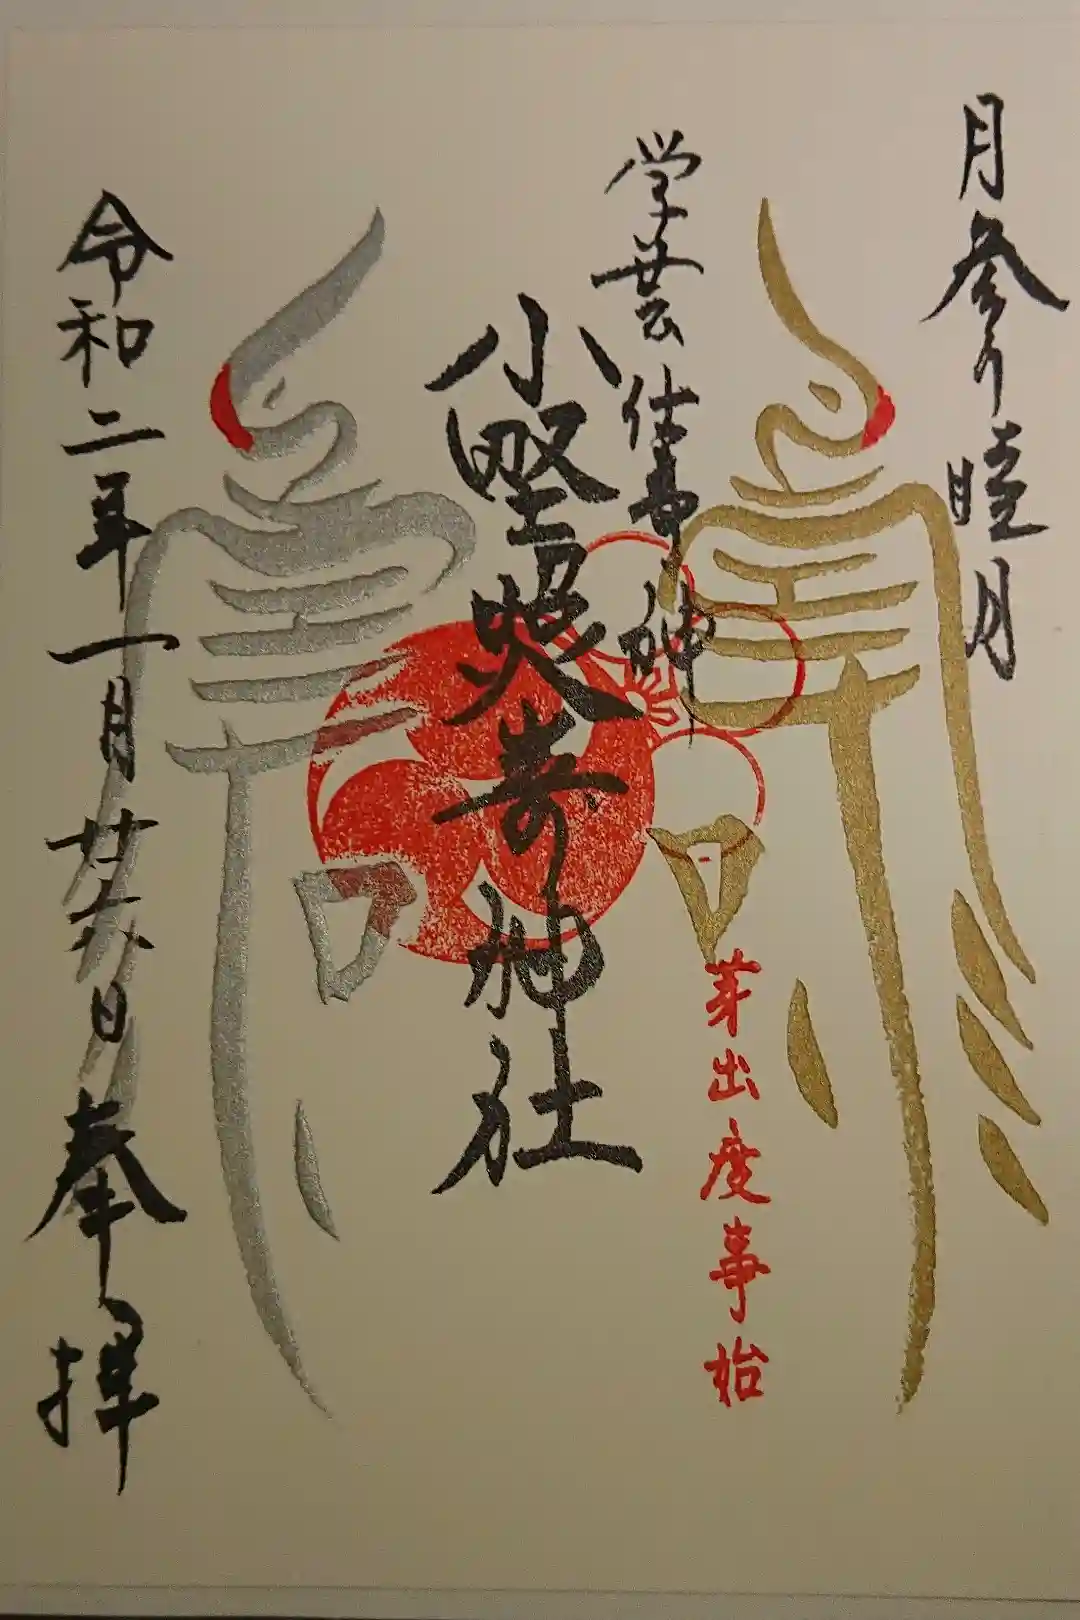 月参り睦月
学芸仕事神
小野照崎神社
芽出度事始
令和二年一月廿六日奉拝